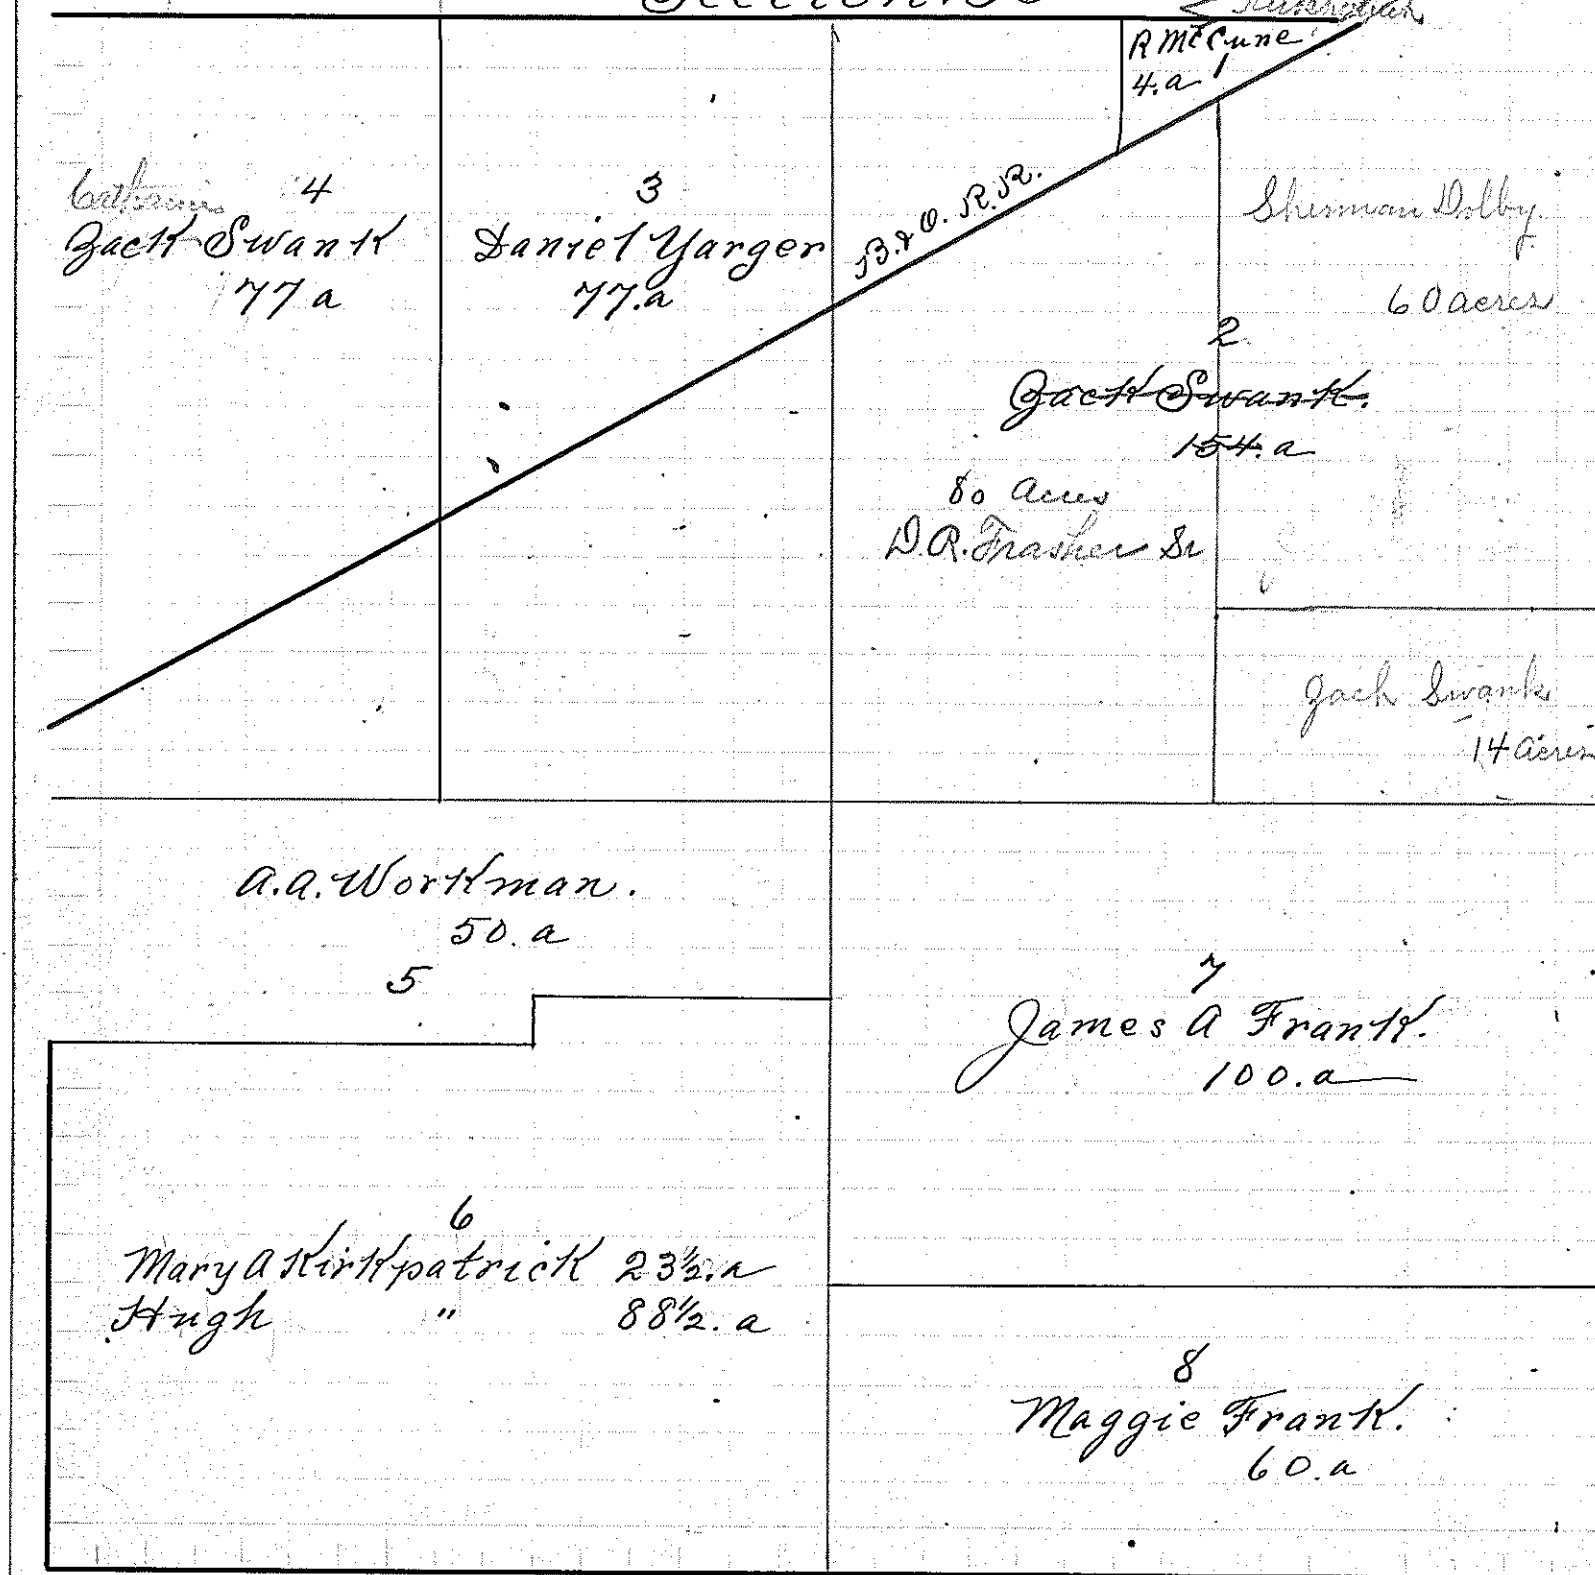 R McCune
4.a 1
Catharine 4
Zack Swank
77 a
3
Daniel Yarger
77.a
B.&O. R.R.
Sherman Dolby
60 acres
2
Zack Swank.
154.a
80 Acres
D.R. Frasher Sr
Zach Swank
14 acres
A.A. Workman.
50.a
5
7
James A Frank.
100.a
6
Mary A Kirkpatrick 23½.a
Hugh " 88½.a
8
Maggie Frank.
60.a